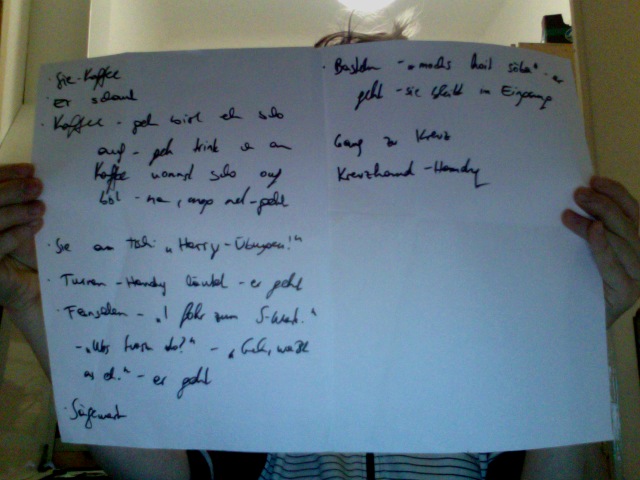 · Sie - Kaffee
· er schaut
· Kaffee - geh wirst eh scho
auf - geh trink i an
Kaffee wannst scho auf
bist - na, mog net - geht
· Sie am Tisch "Harry -
· Turnen - Handy läutet - er geht
· Fernsehen - "I fahr zum
- "Was host do?" - "Geh, waßt
as eh." - er geht
· Sägewerk
· Basteln - "mochs halt schen" - er
geht - sie bleibt im Eingang
Gang zu Kreuz
Kreuzhand - Handy